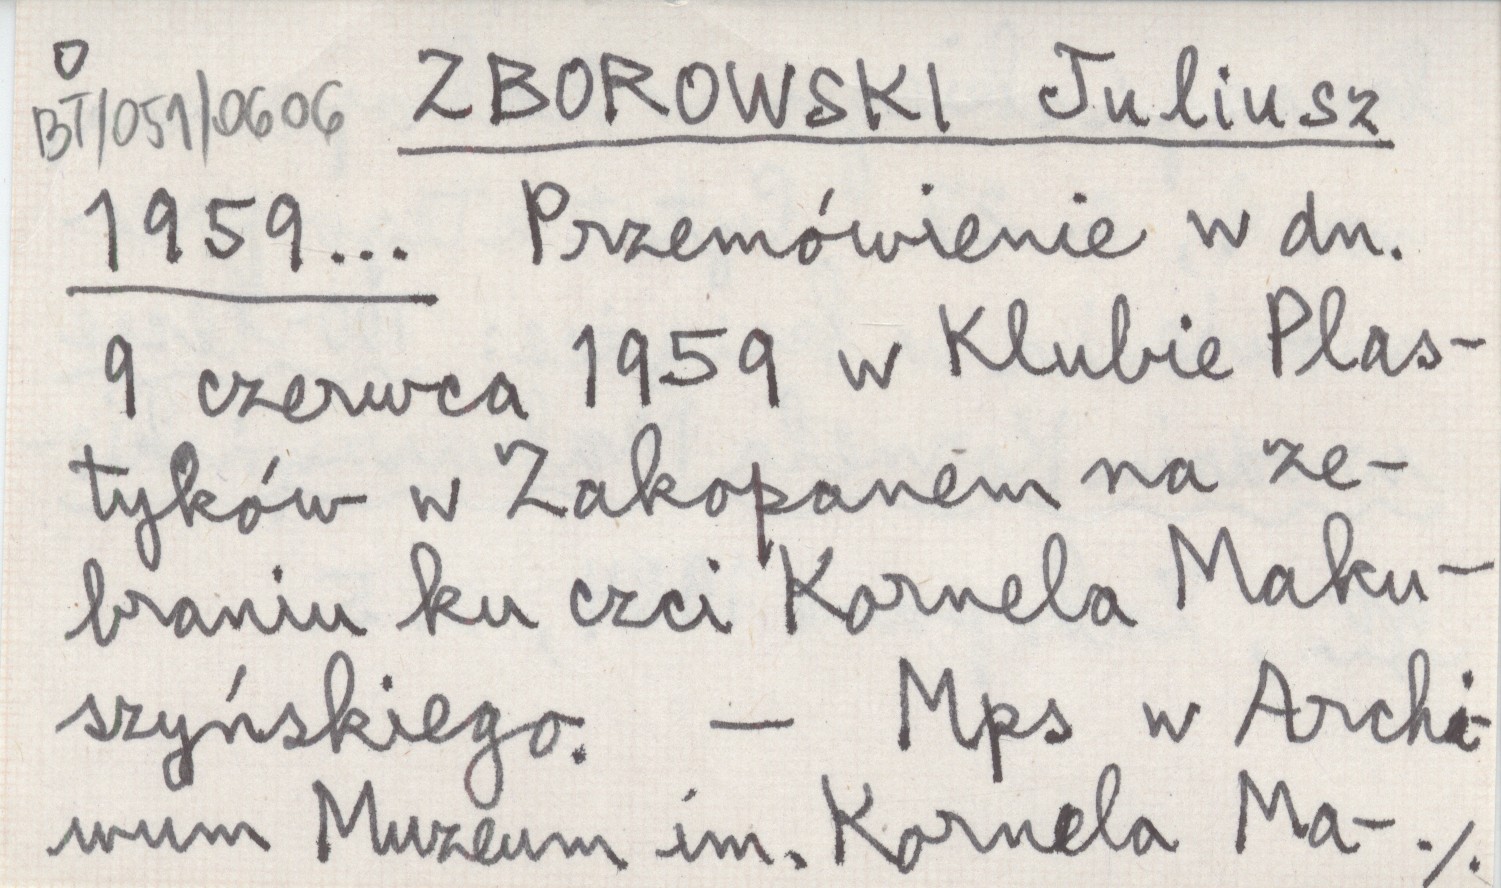 ZBOROWSKI Juliusz
BT/051/0606
1959... Przemówienie w dn.
9 czerwca 1959 w Klubie Plas-
tyków w Zakopanem na ze-
braniu ku czci Kornela Maku-
szyńskiego. — Mps w Archi-
wum Muzeum im. Kornela Ma- ./.